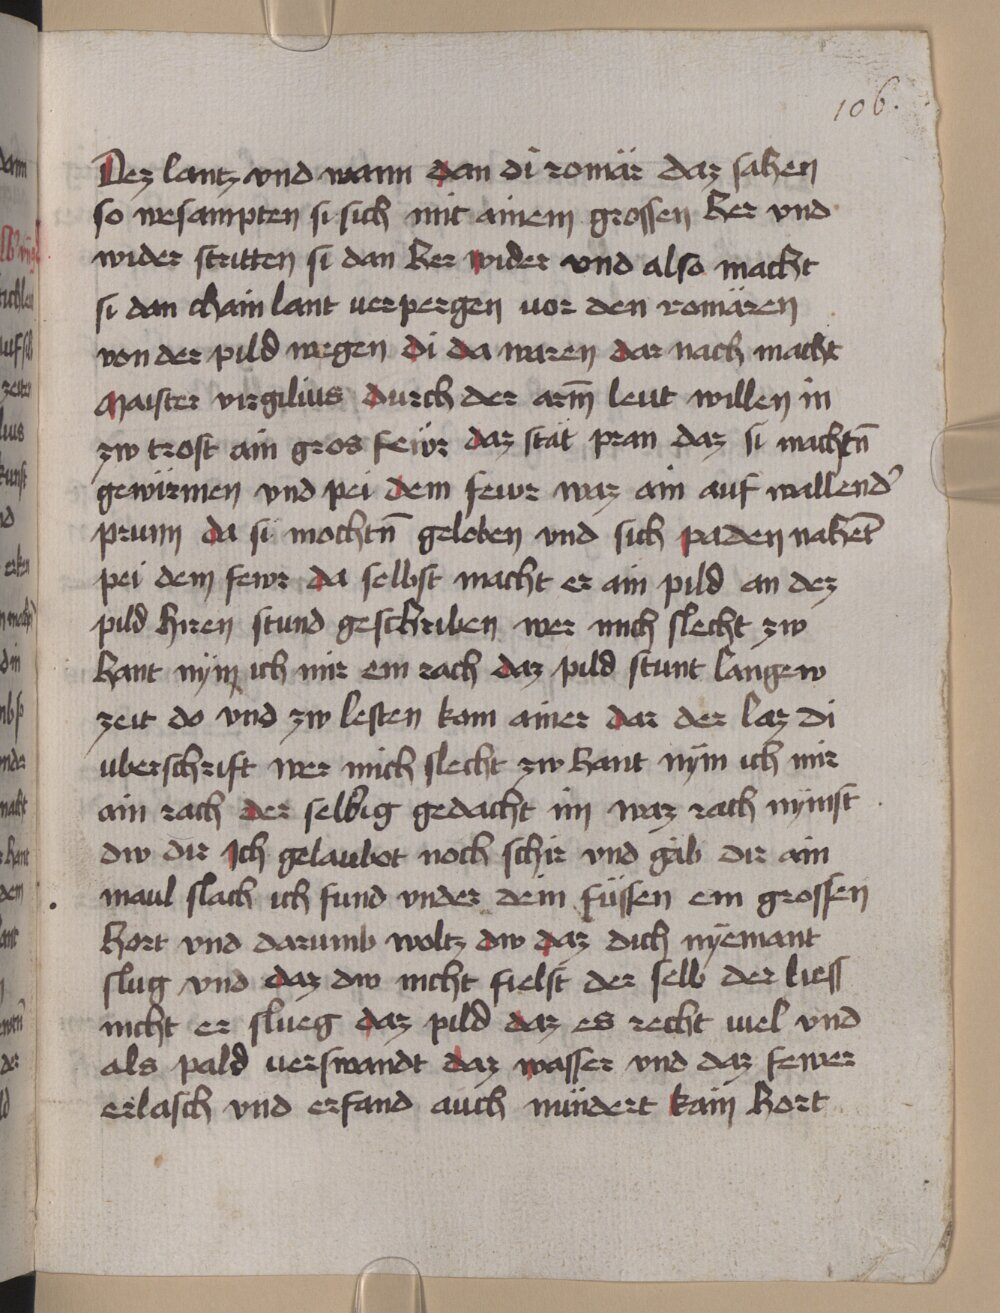 106.
Dez lantz vnd wann dan di romär daz sahen
so wesampten si sich mit ainem grossen her vnd
wider stritten si dan her wider vnd also macht
si dan chain lant verpergen vor den romären
von der pild wegen di da waren dar nach macht
Maister virgilius durch der arm̄ leut willen in
zw trost ain gros fewr daz stät pran daz si machtn̄
gewürmen vnd pei dem fewr waz ain auf wallend'
prunn da si mochtn̄ geloben vnd sich paden nahet
pei dem fewr da selbst macht er ain pild an dez
pild hiren stund geschriben wer mich slecht zw
hant nym ich mir ein rach daz pild stunt langew
zeit do vnd zw lesten kom ainer dar der laz di
uberschrift wer mich slecht zw hant nym ich mir
ain rach der selbig gedacht im waz rach nymst
dw dir Ich gelaubot noch schir vnd gäb dir ain
maul slach ich fund vnder dein füssen ein grossen
hort vnd darumb woltz dw daz dich nyemant
slug vnd daz dw nicht fielst der selb der liess
nicht er slueg daz pild daz es recht viel vnd
als pald verswandt daz wasser vnd daz fewer
erlasch vnd erfand auch nündert kain hort